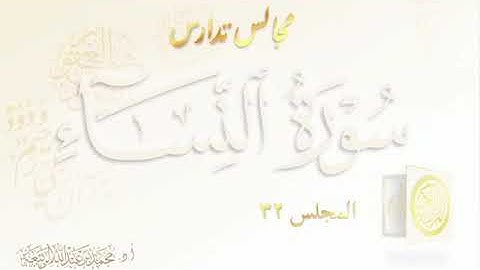 مجالس تدارس
سُورَةُ النِّسَاءِ
المجلس ٣٢
أ.د. محمد بن عبدالله الربيعة